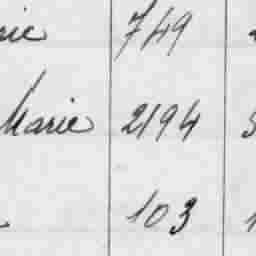 749
Marie 2194
103